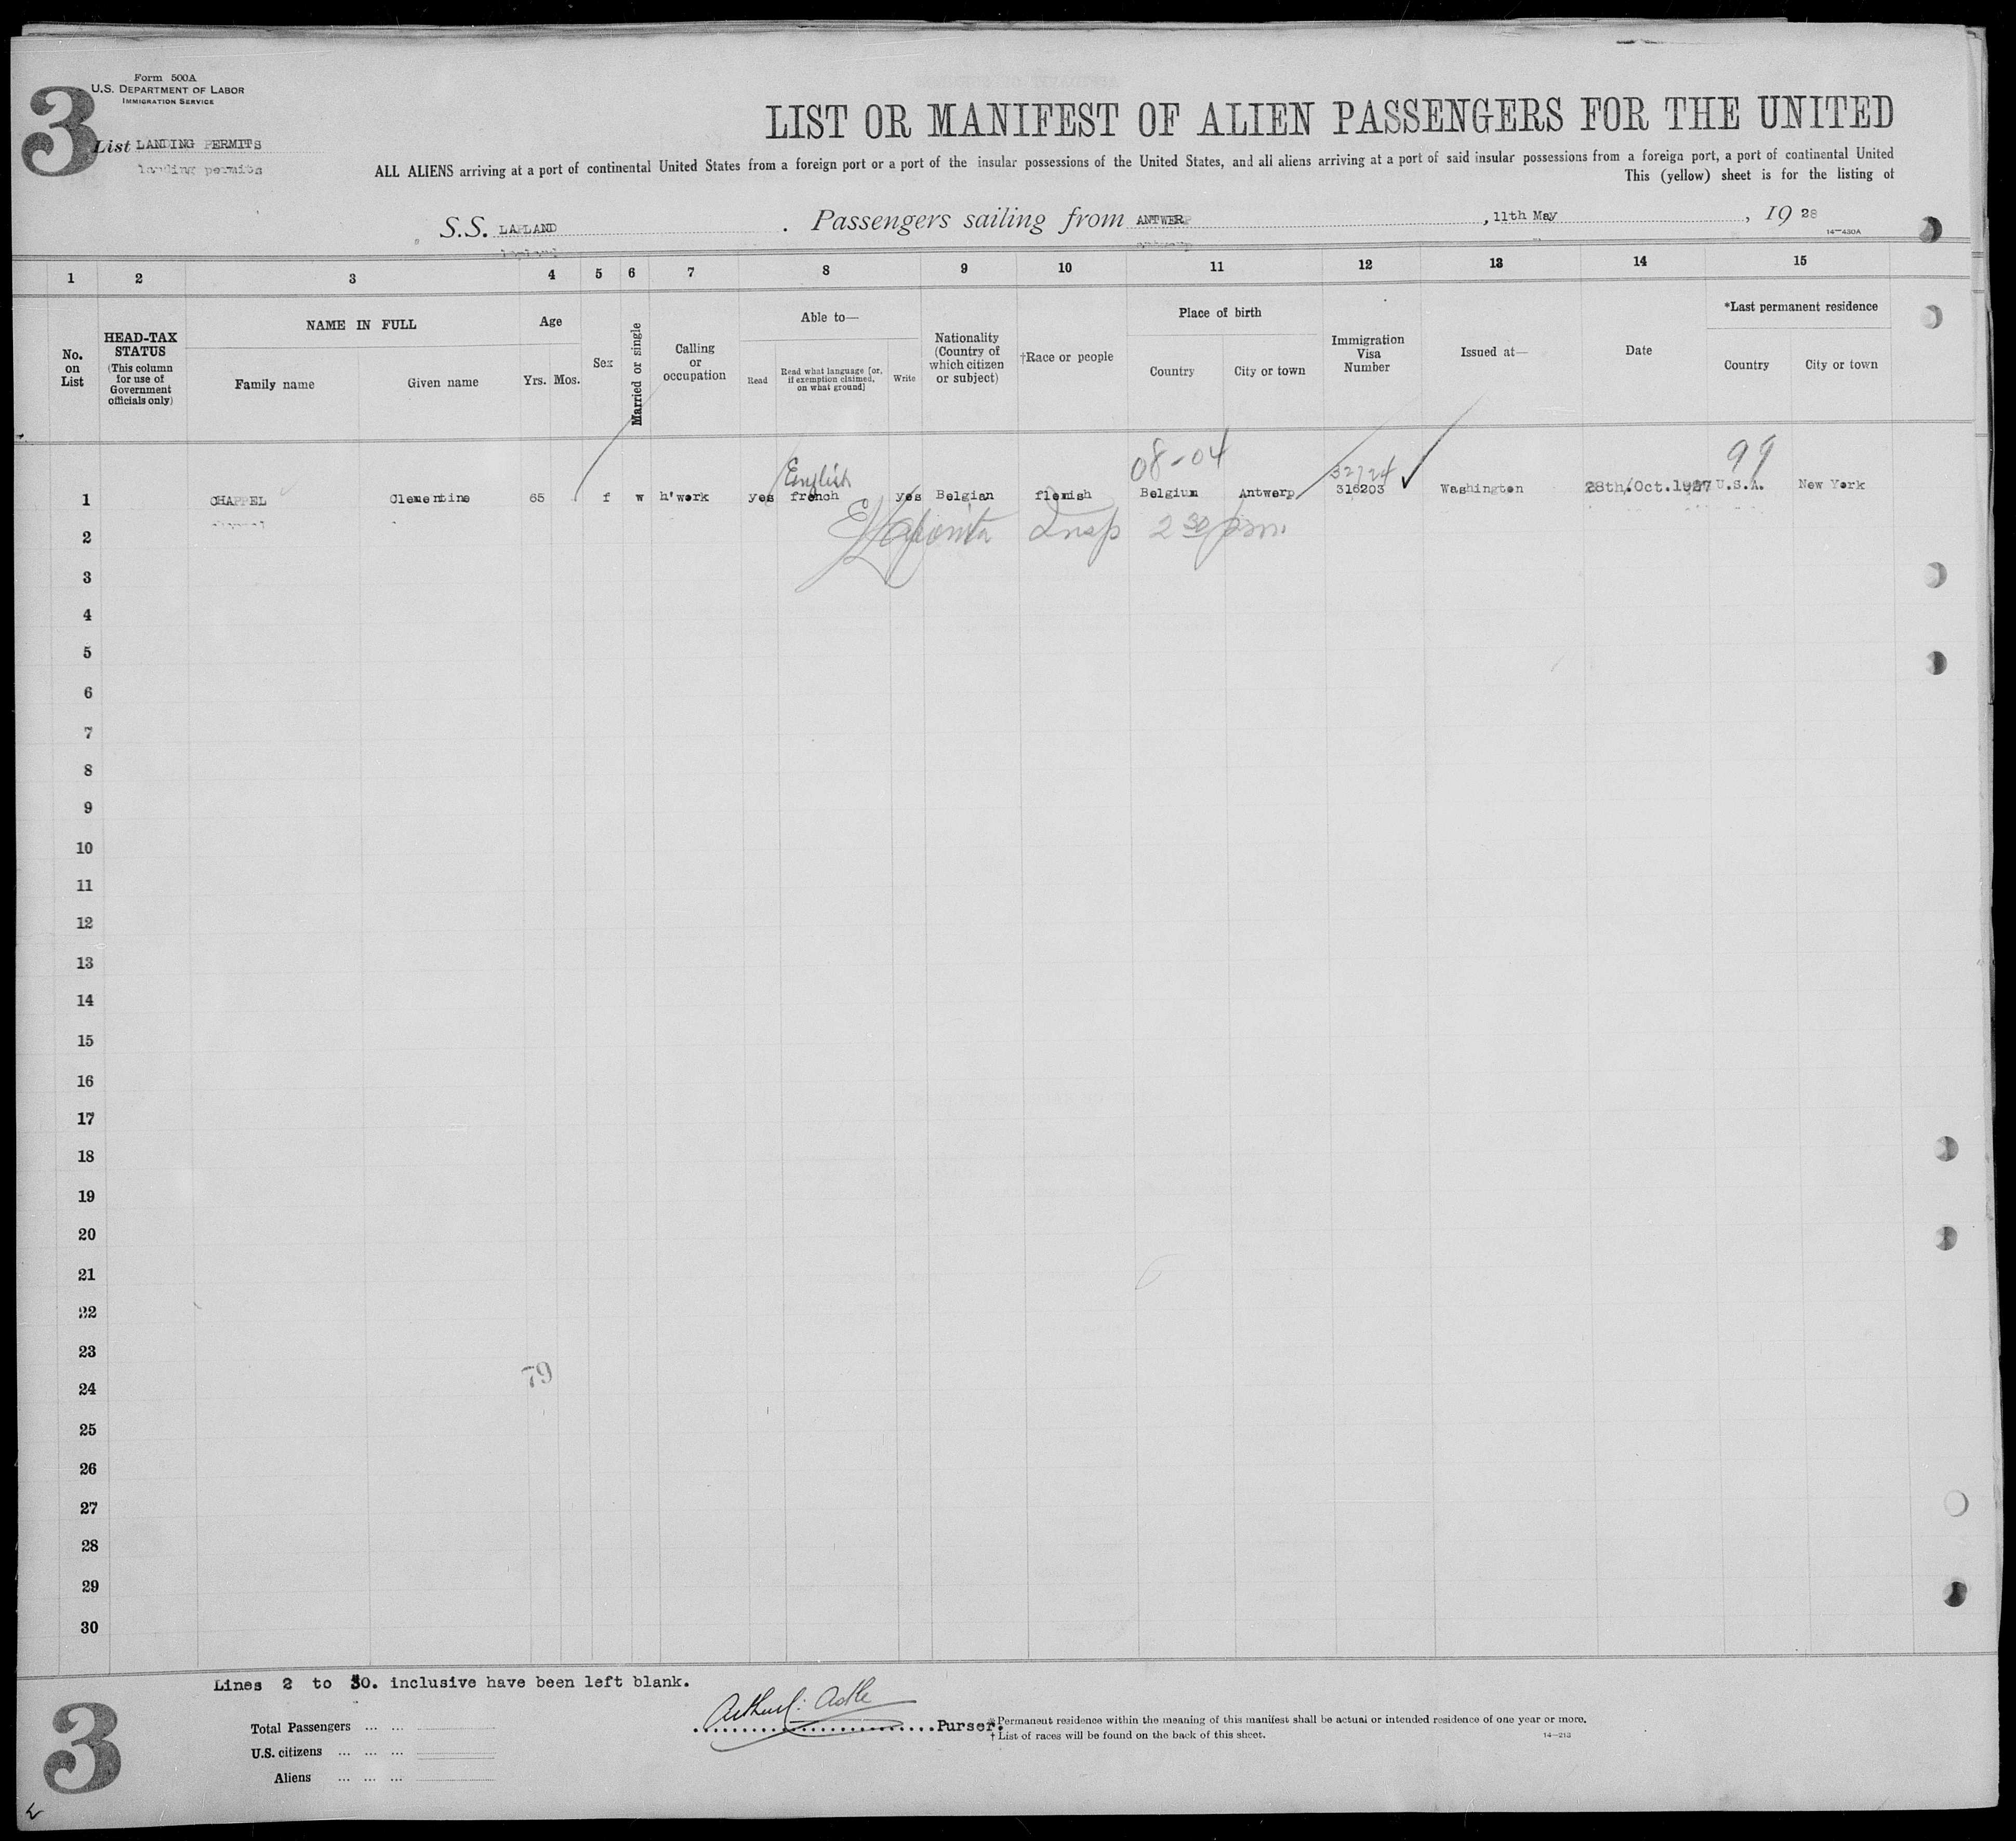 Form 500A
U.S. DEPARTMENT OF LABOR
IMMIGRATION SERVICE
3
List LANDING PERMITS
landing permits
LIST OR MANIFEST OF ALIEN PASSENGERS FOR THE UNITED
ALL ALIENS arriving at a port of continental United States from a foreign port or a port of the insular possessions of the United States, and all aliens arriving at a port of said insular possessions from a foreign port, a port of continental United
This (yellow) sheet is for the listing of
S.S. LAPLAND . Passengers sailing from ANTWERP , 11th May , 19 28
lapland antwerp
14—430A
1 2 3 4 5 6 7 8 9 10 11 12 13 14 15
No. on List
HEAD-TAX STATUS (This column for use of Government officials only)
NAME IN FULL
Family name Given name
Age
Yrs. Mos.
Sex
Married or single
Calling or occupation
Able to—
Read Read what language [or, if exemption claimed, on what ground] Write
Nationality (Country of which citizen or subject)
†Race or people
Place of birth
Country City or town
Immigration Visa Number
Issued at—
Date
*Last permanent residence
Country City or town
English 08-04 32724 99
1 CHAPPEL Clementine 65 f w h'work yes french yes Belgian flemish Belgium Antwerp 316203 Washington 28th.Oct.1927 U.S.A. New York
Insp 2 30 pm.
2
3
4
5
6
7
8
9
10
11
12
13
14
15
16
17
18
19
20
21
22
23
79
24
25
26
27
28
29
30
Lines 2 to 30. inclusive have been left blank.
3
Total Passengers ... ...
U.S. citizens ... ... ...
Aliens ... ... ...
Purser.
*Permanent residence within the meaning of this manifest shall be actual or intended residence of one year or more.
† List of races will be found on the back of this sheet.
14—213